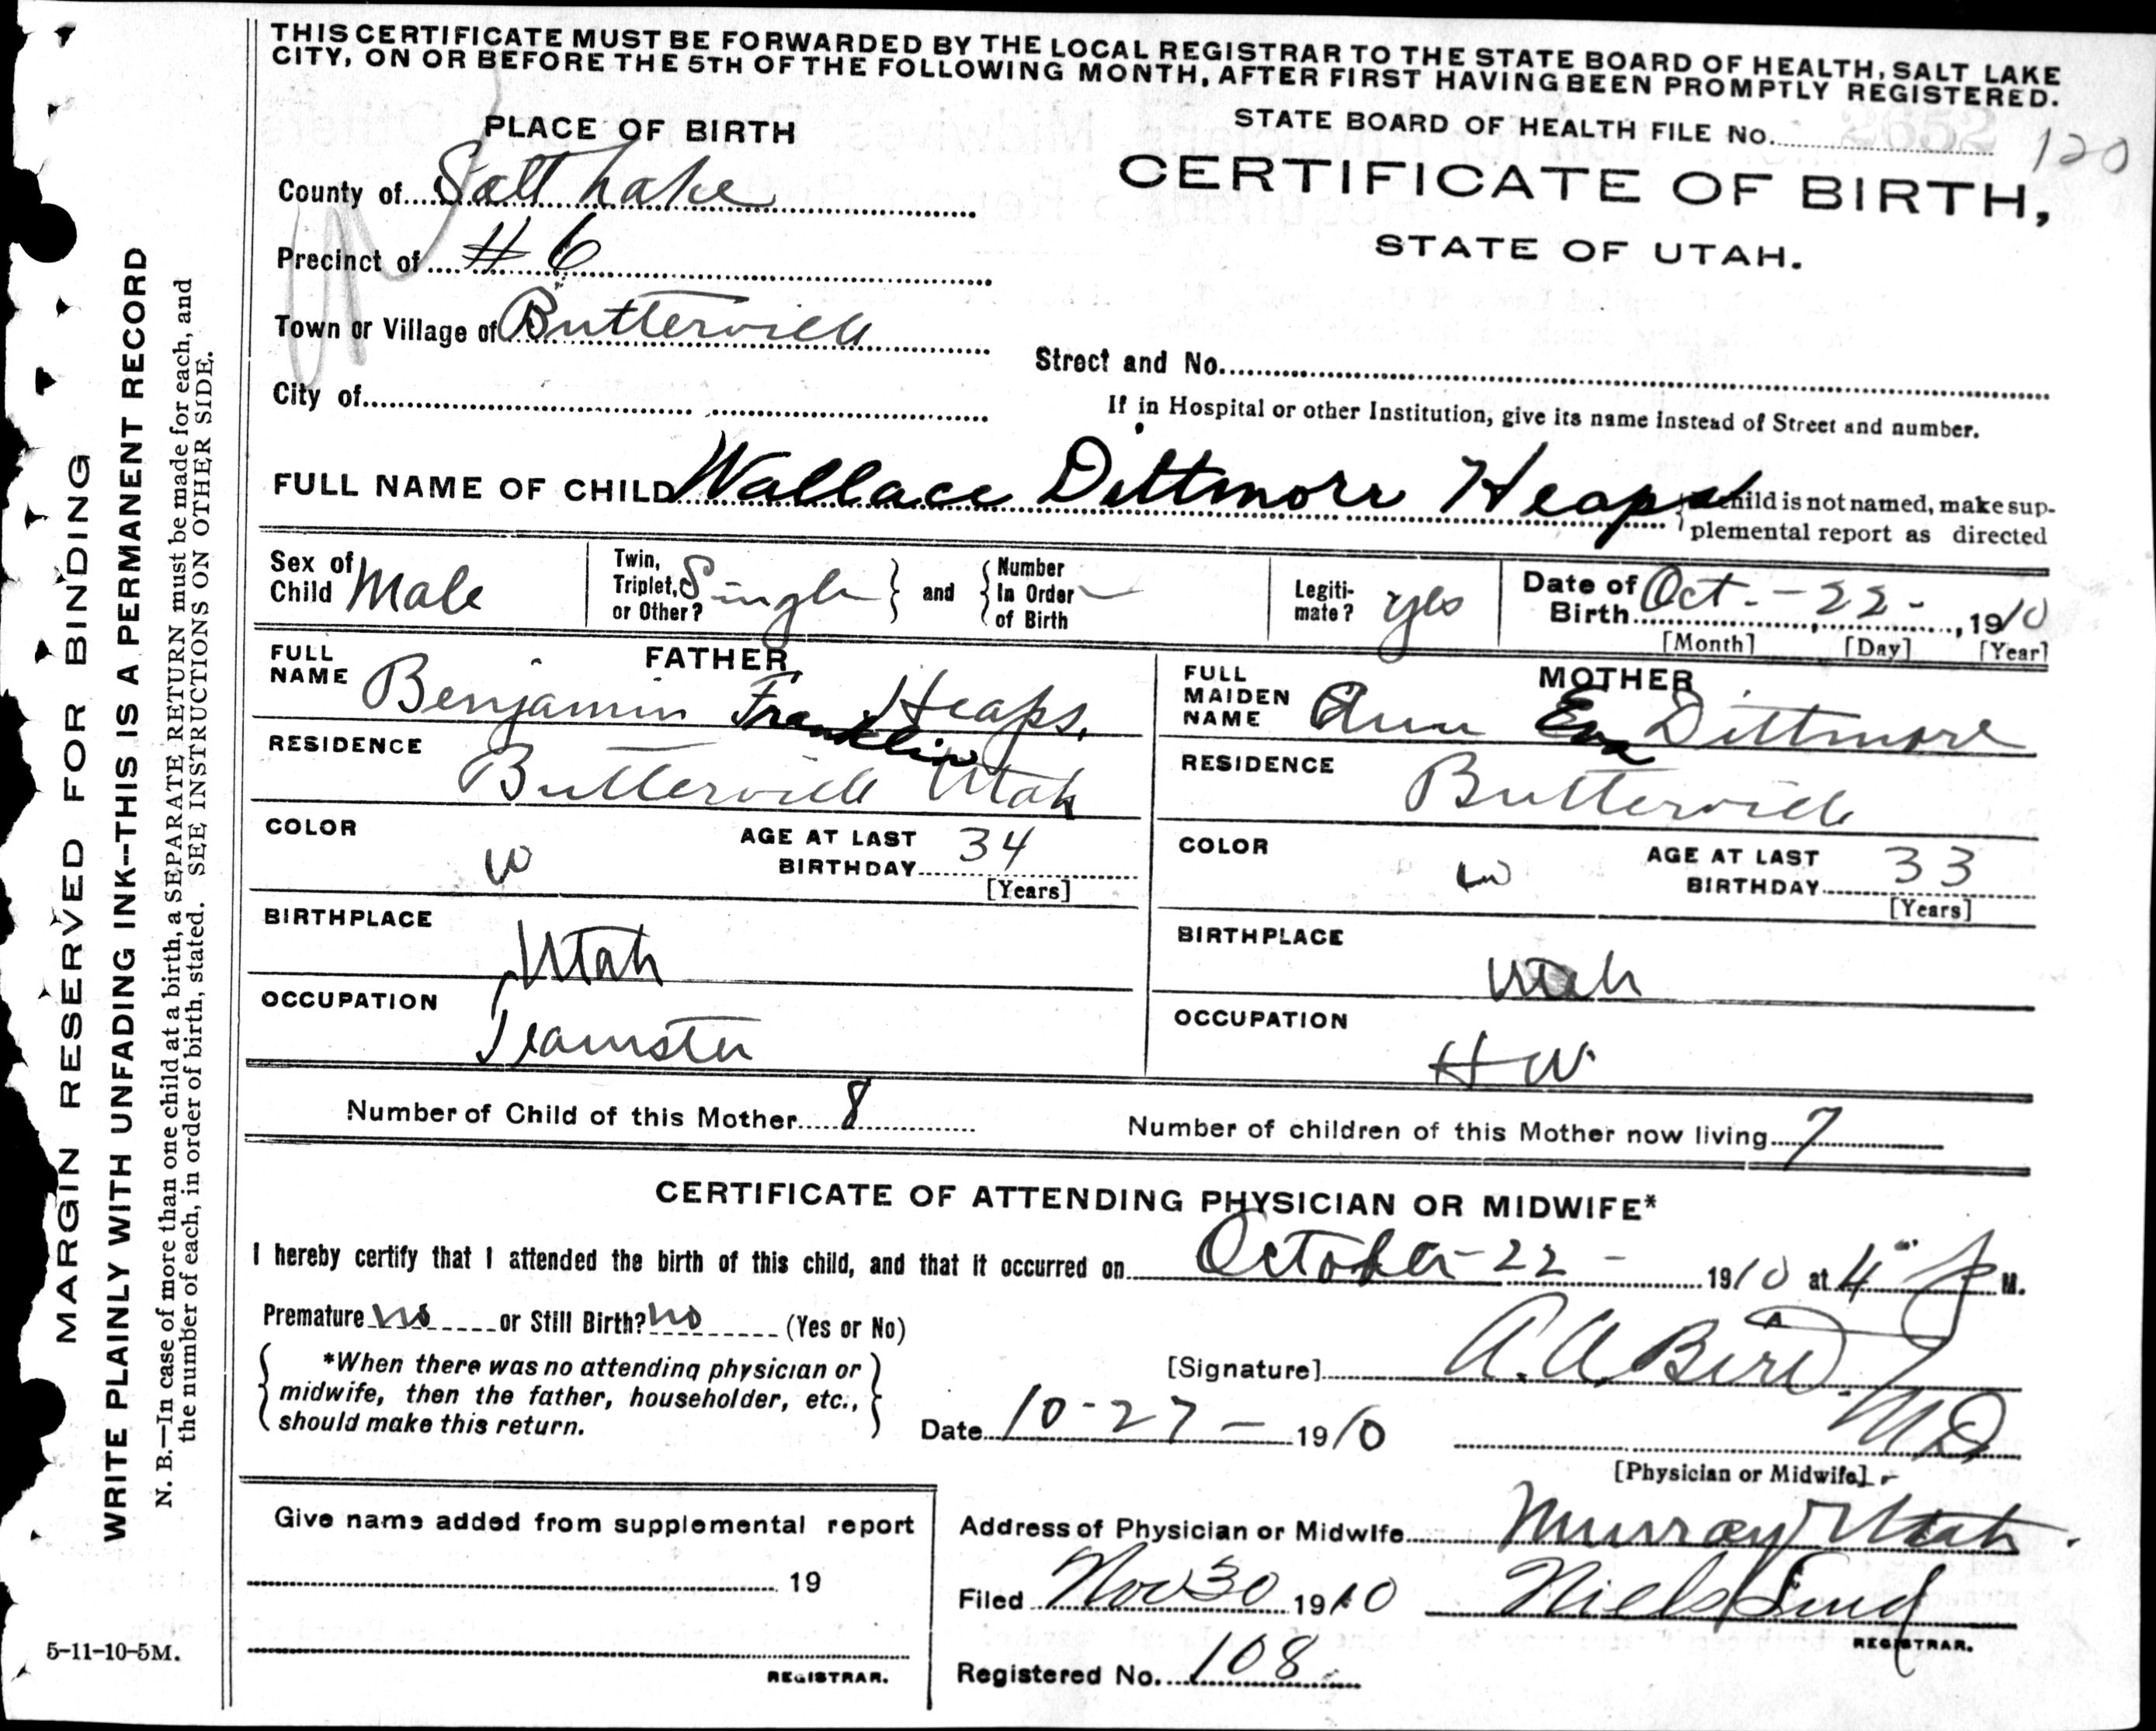 THIS CERTIFICATE MUST BE FORWARDED BY THE LOCAL REGISTRAR TO THE STATE BOARD OF HEALTH, SALT LAKE
CITY, ON OR BEFORE THE 5TH OF THE FOLLOWING MONTH, AFTER FIRST HAVING BEEN PROMPTLY REGISTERED.
STATE BOARD OF HEALTH FILE No. 2652 120
PLACE OF BIRTH
CERTIFICATE OF BIRTH,
STATE OF UTAH.
County of Salt Lake
Precinct of #6
Town or Village of Butlerville
Street and No.
City of
If in Hospital or other Institution, give its name instead of Street and number.
FULL NAME OF CHILD Wallace Dittmore Heaps child is not named, make sup-
plemental report as directed
Sex of Child Male
Twin, Triplet, or Other? Single and Number In Order of Birth
Legiti-mate? yes
Date of Birth Oct. - 22 - , 1910
[Month] [Day] [Year]
FATHER
FULL NAME Benjamin Franklin Heaps.
MOTHER
FULL MAIDEN NAME Ann Eva Dittmore
RESIDENCE Butlerville Utah
RESIDENCE Butlerville
COLOR W AGE AT LAST BIRTHDAY 34 [Years]
COLOR W AGE AT LAST BIRTHDAY 33 [Years]
BIRTHPLACE Utah
BIRTHPLACE Utah
OCCUPATION Teamster
OCCUPATION H W
Number of Child of this Mother 8
Number of children of this Mother now living 7
CERTIFICATE OF ATTENDING PHYSICIAN OR MIDWIFE*
I hereby certify that I attended the birth of this child, and that it occurred on October - 22 - 1910 at 4 P M.
Premature no or Still Birth? no (Yes or No)
*When there was no attending physician or
midwife, then the father, householder, etc.,
should make this return.
[Signature] A. A. Bird. MD
Date 10-27- 1910
[Physician or Midwife]
Give name added from supplemental report
19
REGISTRAR.
Address of Physician or Midwife Murray Utah.
Filed Nov 30 1910 Niels Lind
REGISTRAR.
Registered No. 108
5-11-10-5M.
MARGIN RESERVED FOR BINDING
WRITE PLAINLY WITH UNFADING INK--THIS IS A PERMANENT RECORD
N. B.—In case of more than one child at a birth, a SEPARATE RETURN must be made for each, and
the number of each, in order of birth, stated. SEE INSTRUCTIONS ON OTHER SIDE.